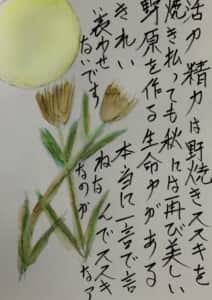 活力 精力は野焼きススキを
焼き払っても秋には再び美しい
野原を作る生命力がある
きれい 本当に一言で言
い表わせ
ないです
ねなんでススキ
なのかなァ